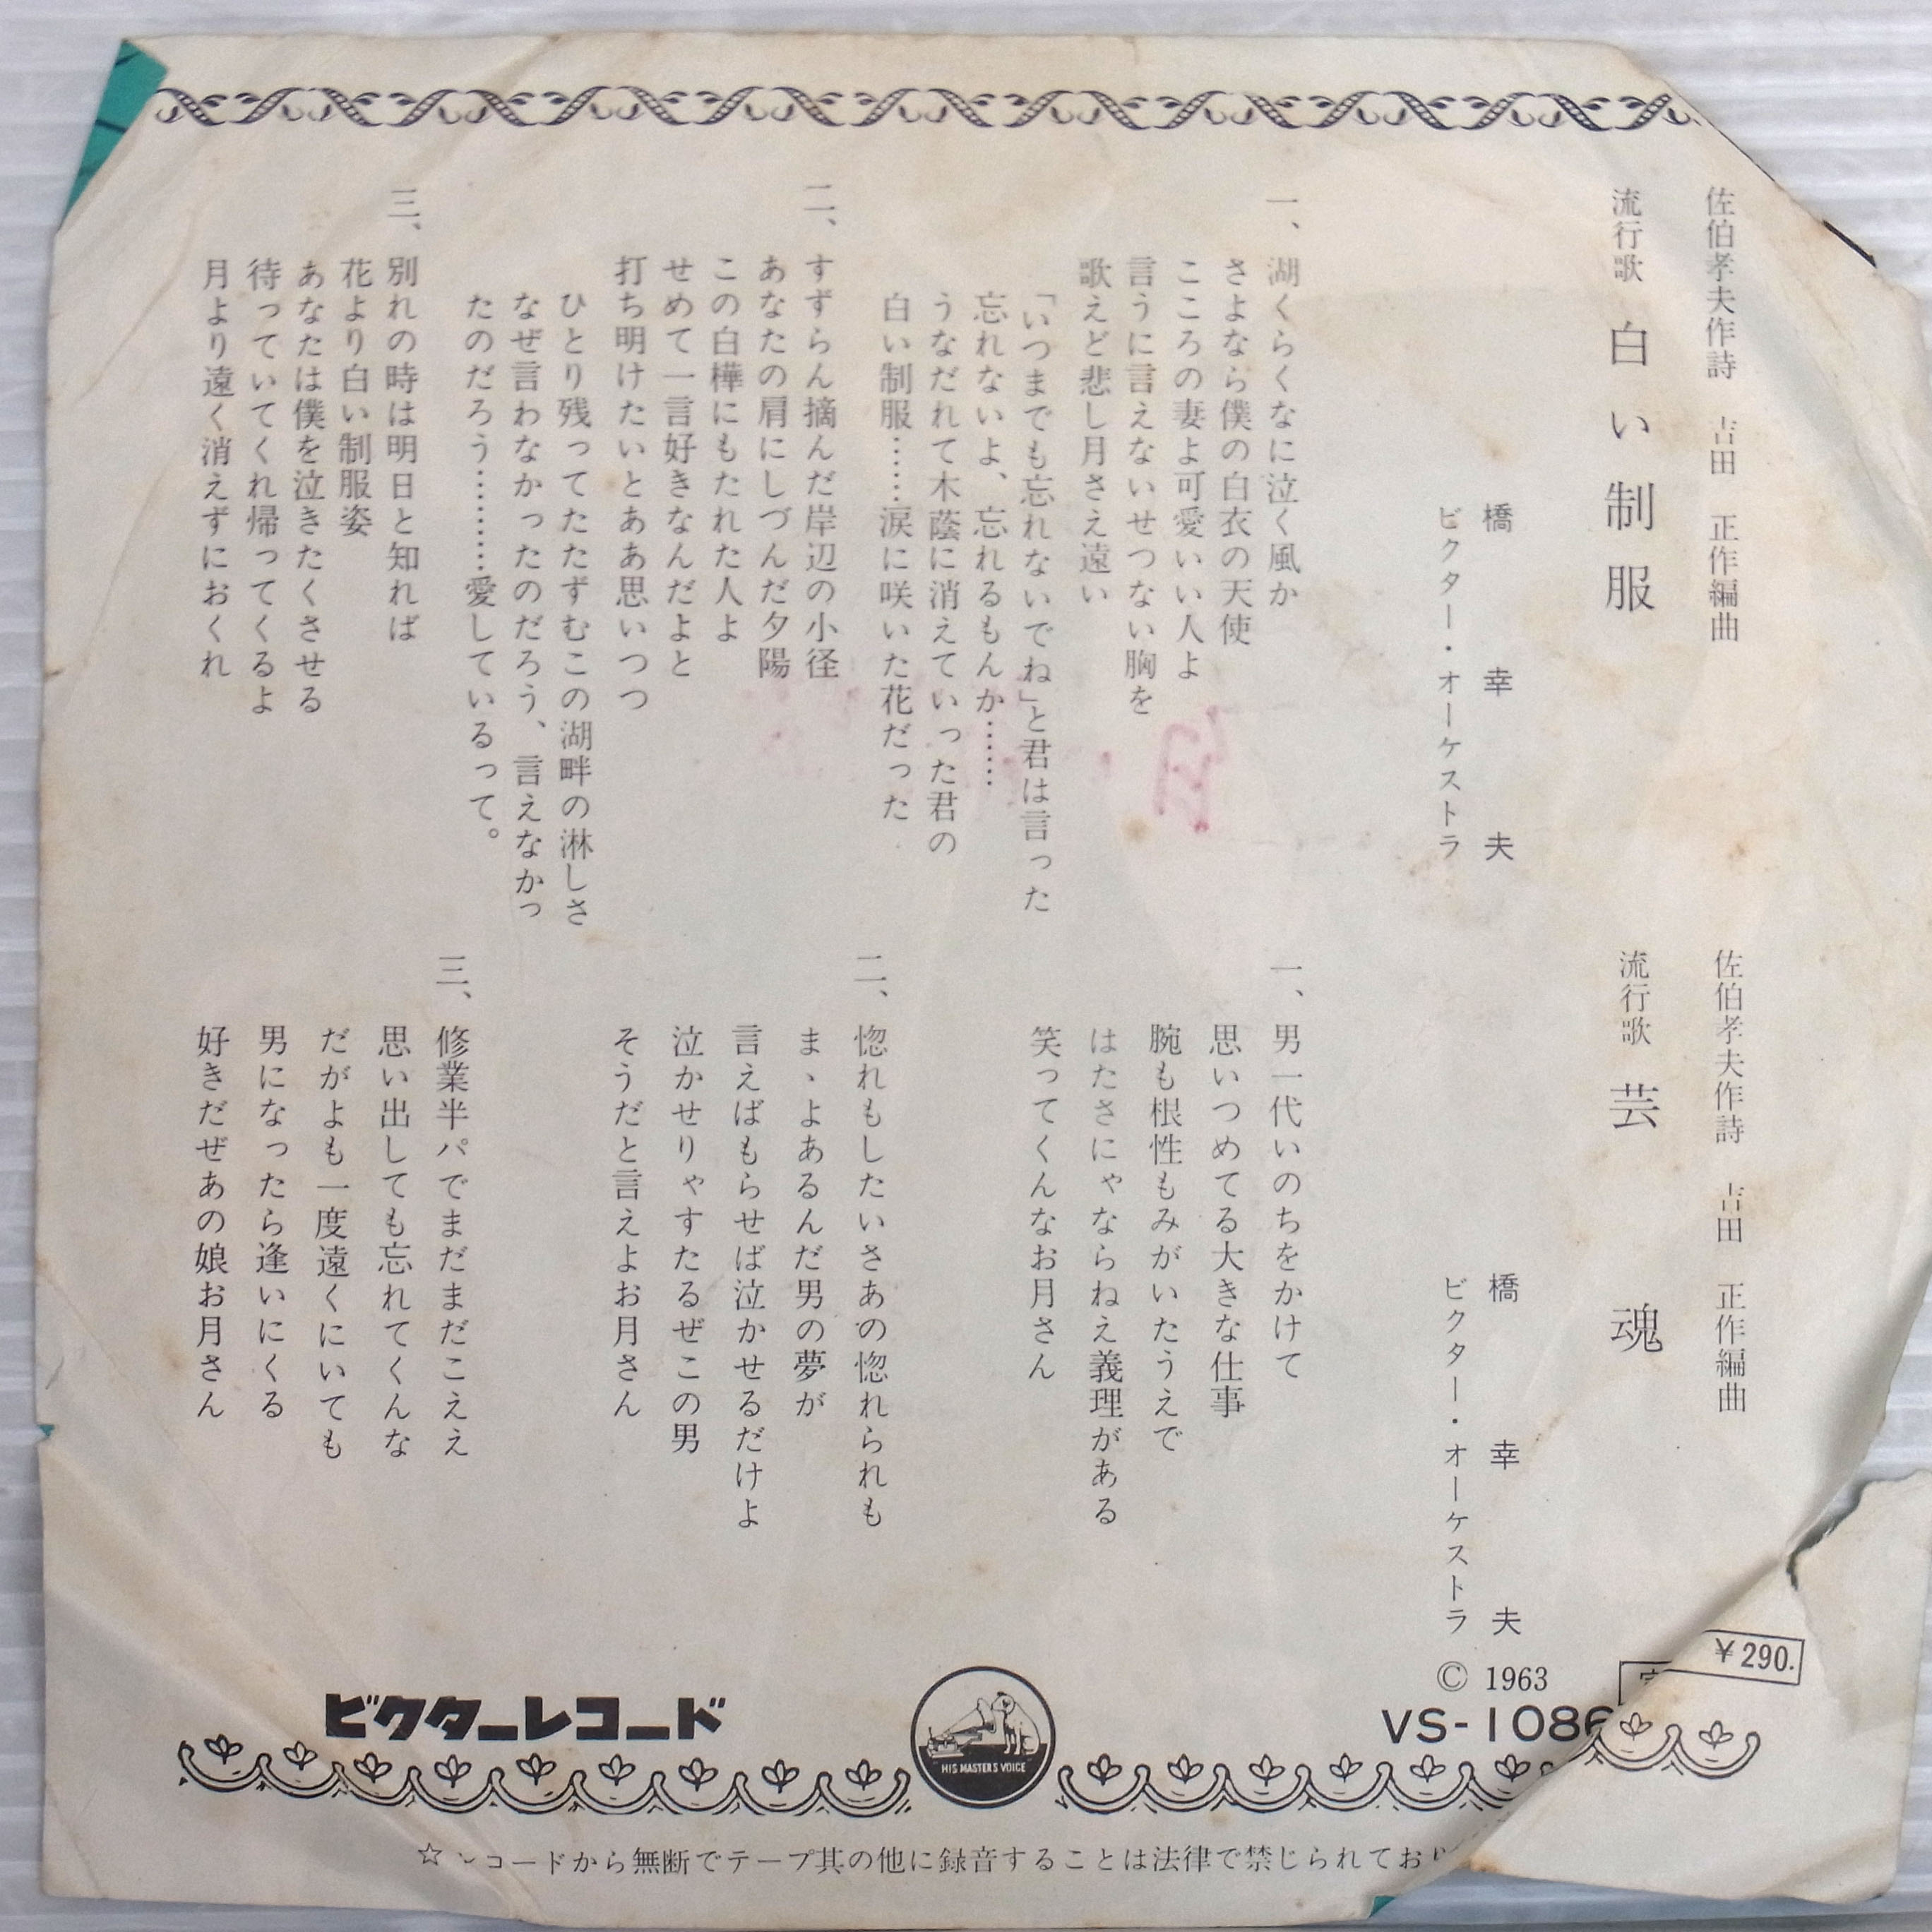 佐伯孝夫作詩 吉田 正作編曲
流行歌 白い制服
橋 幸 夫
ビクター・オーケストラ
一、湖くらくなに泣く風か
さよなら僕の白衣の天使
こころの妻よ可愛いい人よ
言うに言えないせつない胸を
歌えど悲し月さえ遠い
「いつまでも忘れないでね」と君は言った
忘れないよ、忘れるもんか……
うなだれて木蔭に消えていった君の
白い制服……涙に咲いた花だった
二、すずらん摘んだ岸辺の小径
あなたの肩にしづんだ夕陽
この白樺にもたれた人よ
せめて一言好きなんだよと
打ち明けたいとああ思いつつ
ひとり残ってたたずむこの湖畔の淋しさ
なぜ言わなかったのだろう、言えなかっ
たのだろう………愛しているって。
三、別れの時は明日と知れば
花より白い制服姿
あなたは僕を泣きたくさせる
待っていてくれ帰ってくるよ
月より遠く消えずにおくれ
佐伯孝夫作詩 吉田 正作編曲
流行歌 芸 魂
橋 幸 夫
ビクター・オーケストラ
一、男一代いのちをかけて
思いつめてる大きな仕事
腕も根性もみがいたうえで
はたさにゃならねえ義理がある
笑ってくんなお月さん
二、惚れもしたいさあの惚れられも
まゝよあるんだ男の夢が
言えばもらせば泣かせるだけよ
泣かせりゃすたるぜこの男
そうだと言えよお月さん
三、修業半パでまだまだこええ
思い出しても忘れてくんな
だがよも一度遠くにいても
男になったら逢いにくる
好きだぜあの娘お月さん
© 1963
¥290.
VS-1086
ビクターレコード
HIS MASTERS VOICE
☆レコードから無断でテープ其の他に録音することは法律で禁じられており